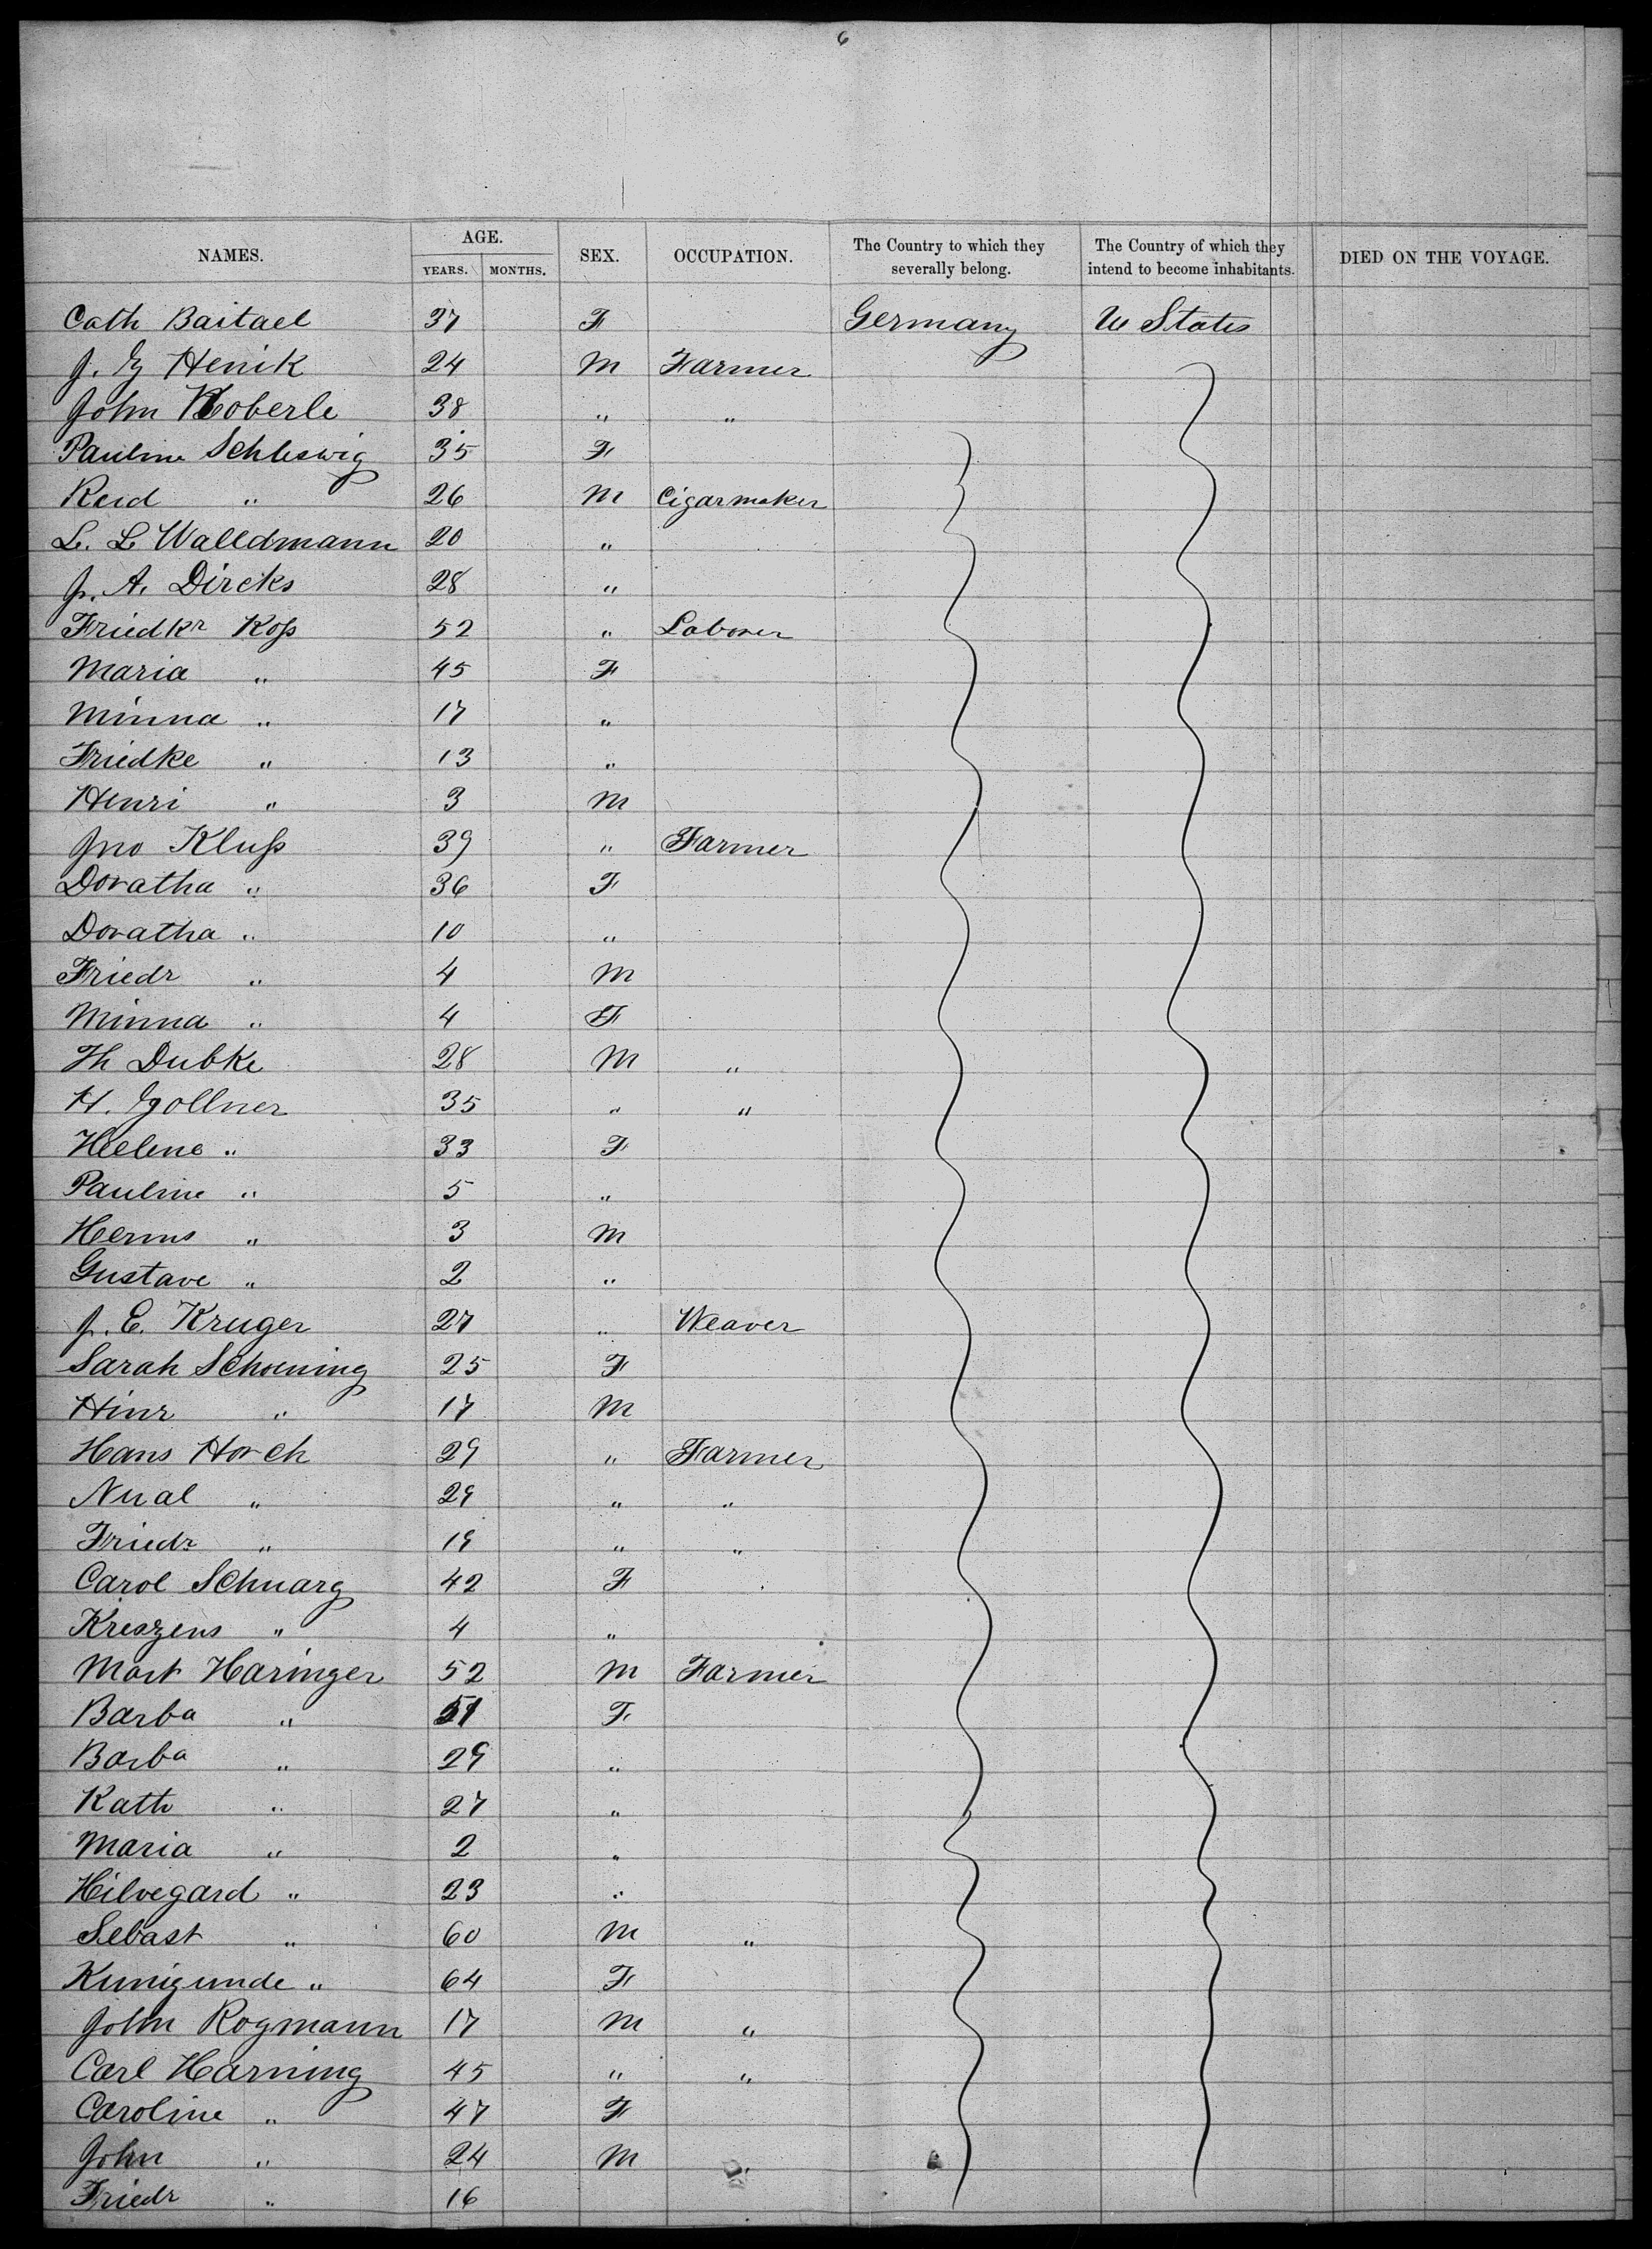 6
NAMES. AGE. YEARS. MONTHS. SEX. OCCUPATION. The Country to which they severally belong. The Country of which they intend to become inhabitants. DIED ON THE VOYAGE.
Cath Baitael 37 F Germany U States
J. G Henik 24 M Farmer
John Koberle 38 " "
Pauline Schleswig 35 F
Reid " 26 M Cigarmaker
L. L Walldmann 20 "
J. A. Dircks 28 "
Friedkr Koss 52 " Laborer
Maria " 45 F
Minna " 17 "
Friedke " 13 "
Henri " 3 M
Jno Kluss 39 " Farmer
Doratha " 36 F
Doratha " 10 "
Friedr " 4 M
Minna " 4 F
Th Dubke 28 M "
H. Gollner 35 " "
Helene " 33 F
Pauline " 5 "
Herms " 3 M
Gustave " 2 "
J. E. Kruger 27 " Weaver
Sarah Schoening 25 F
Hinr " 17 M
Hans Horch 29 " Farmer
Nual " 29 " "
Friedr " 19 " "
Carol Schuarg 42 F
Kreszens " 4 "
Mart Haringer 52 M Farmer
Barba " 51 F
Barba " 29 "
Kath " 27 "
Maria " 2 "
Hilvegard " 23 "
Sebast " 60 M "
Kunigunde " 64 F
John Rogmann 17 M "
Carl Harning 45 " "
Caroline " 47 F
John " 24 M "
Friedr " 16